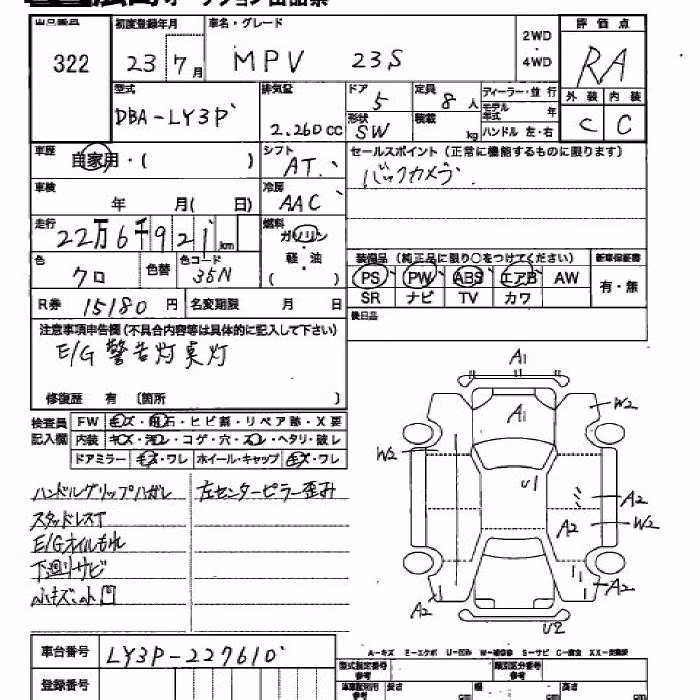 322
初度登録年月
23 7月
車名・グレード
MPV 23S
2WD
・
4WD
評価点
RA
外装 内装
C C
型式
DBA-LY3P
排気量
2.260cc
ドア
5
定員
8人
形状
SW
積載
kg
ディーラー・並行
モデル年式 年
ハンドル 左・右
車歴
自家用・( )
シフト
AT
セールスポイント (正常に機能するものに限ります)
バックカメラ
車検
年 月( 日)
冷房
AAC
走行
22万6千921km
燃料
ガソリン
・
軽・油
( )
色
クロ
色替
色コード
35N
装備品 (純正品に限り○をつけてください)
PS PW ABS エアB AW
SR ナビ TV カワ
新車保証書
有・無
R券 15180円
名変期限 月 日
後日品
注意事項申告欄(不具合内容等は具体的に記入して下さい)
E/G 警告灯点灯
修復歴 有 〔箇所 〕
検査員記入欄
FW キズ・飛石・ヒビ割・リペア跡・X要
内装 キズ・汚レ・コゲ・穴・スレ・ヘタリ・破レ
ドアミラー キズ・ワレ ホイール・キャップ キズ・ワレ
ハンドルグリップハガレ
左センターピラー歪み
スタッドレスT
E/Gオイルもれ
下廻りサビ
小キズ小凹
A1
A1
W2
W2
U1
A2
A2
W2
A2
A2
U2
車台番号
LY3P-227610
登録番号
A-キズ E-エクボ U-凹み W-補修跡 S-サビ C-腐食 XX-交換跡
型式指定番号
参考
類別区分番号
参考
長さ cm
幅 cm
高さ cm